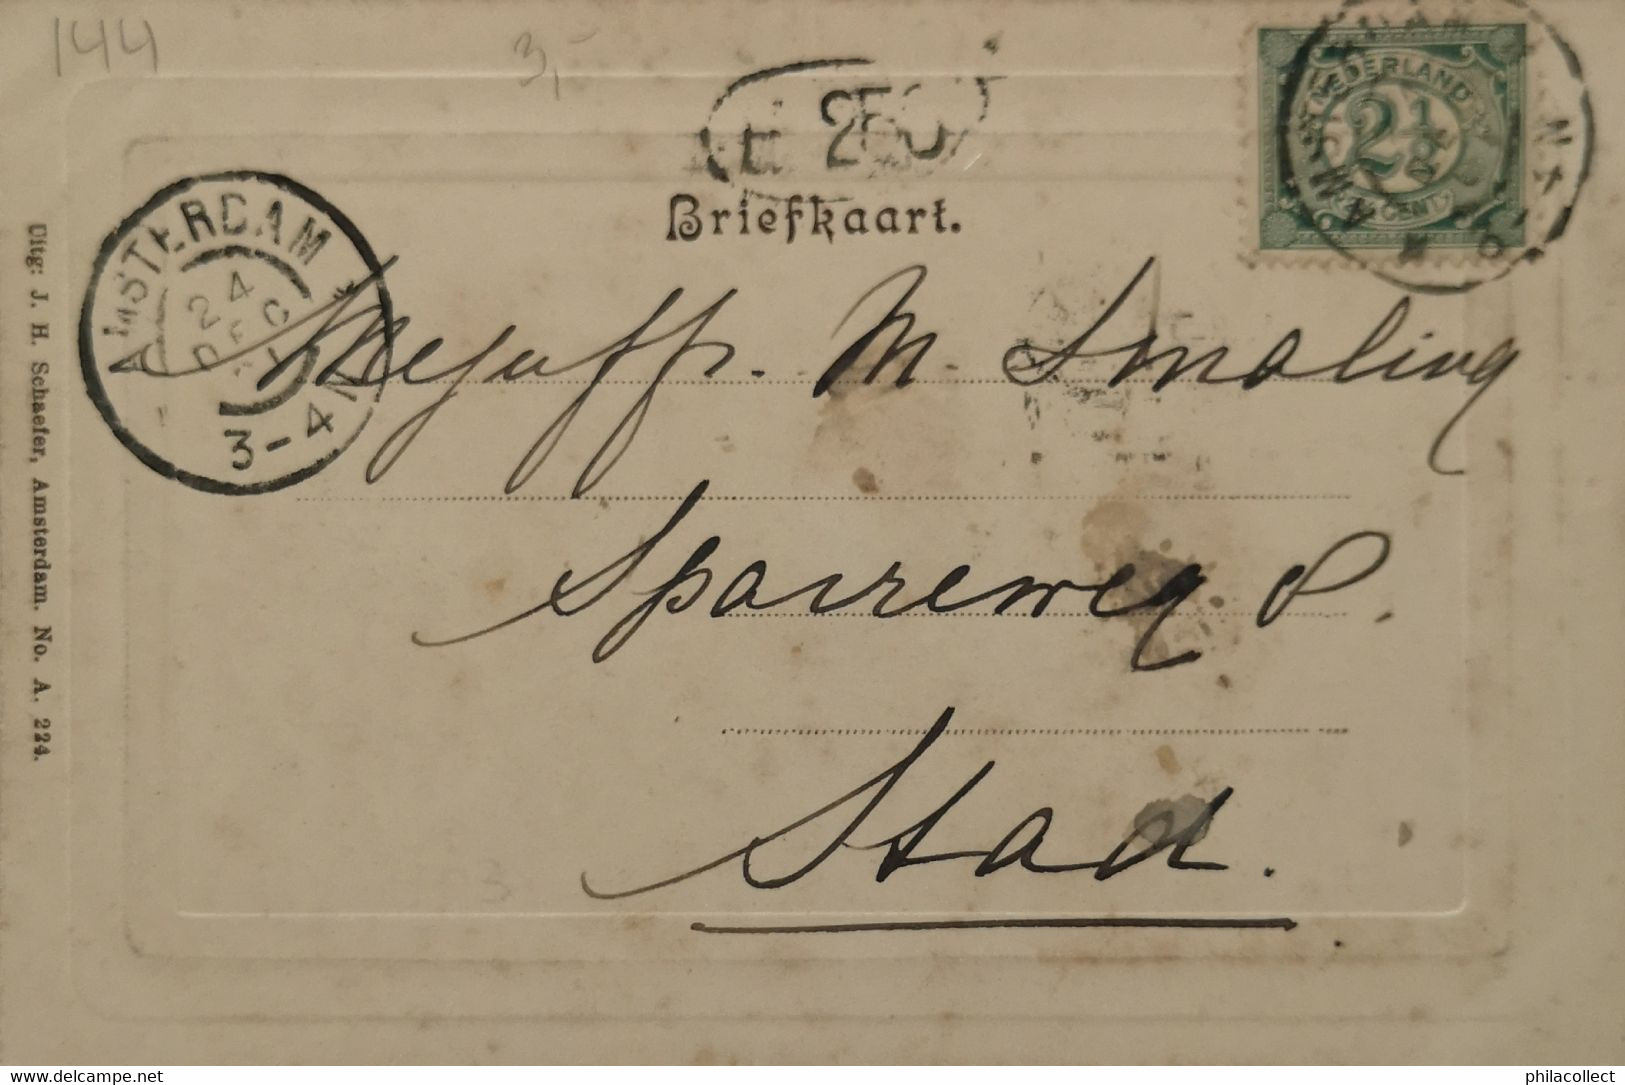 144
3,-
250
Briefkaart.
NEDERLAND
2½
CENT
AMSTERDAM *
24
DEC
3-4 N
Mejuffr. M. Smaling
Sparreweg 8.
Stad.
Uitg: J. H. Schaefer, Amsterdam. No. A. 224.
www.delcampe.net
philacollect